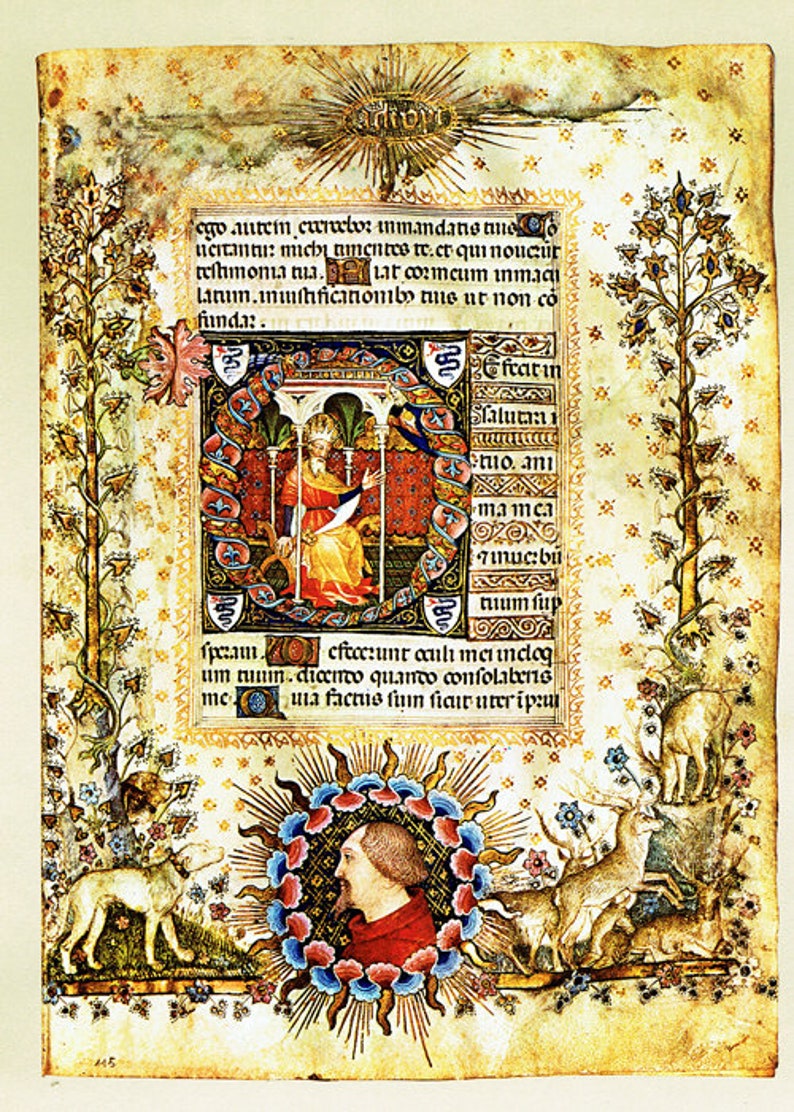 ego autem exercebor inmandatis tuis Co
uertantur michi timentes te. et qui nouerūt
testimonia tua. Fiat cor meum inmacu
latum. iniustificationibꝫ tuis ut non cō
fundar.
Efecit in
salutari i
tuo. ani
ma mea
⁊ inuerbū
tuum sup
speraui. Defecerunt oculi mei ineloq
um tuum. dicendo quando consolaberis
me Quia factus sum sicut uter ī prui
115